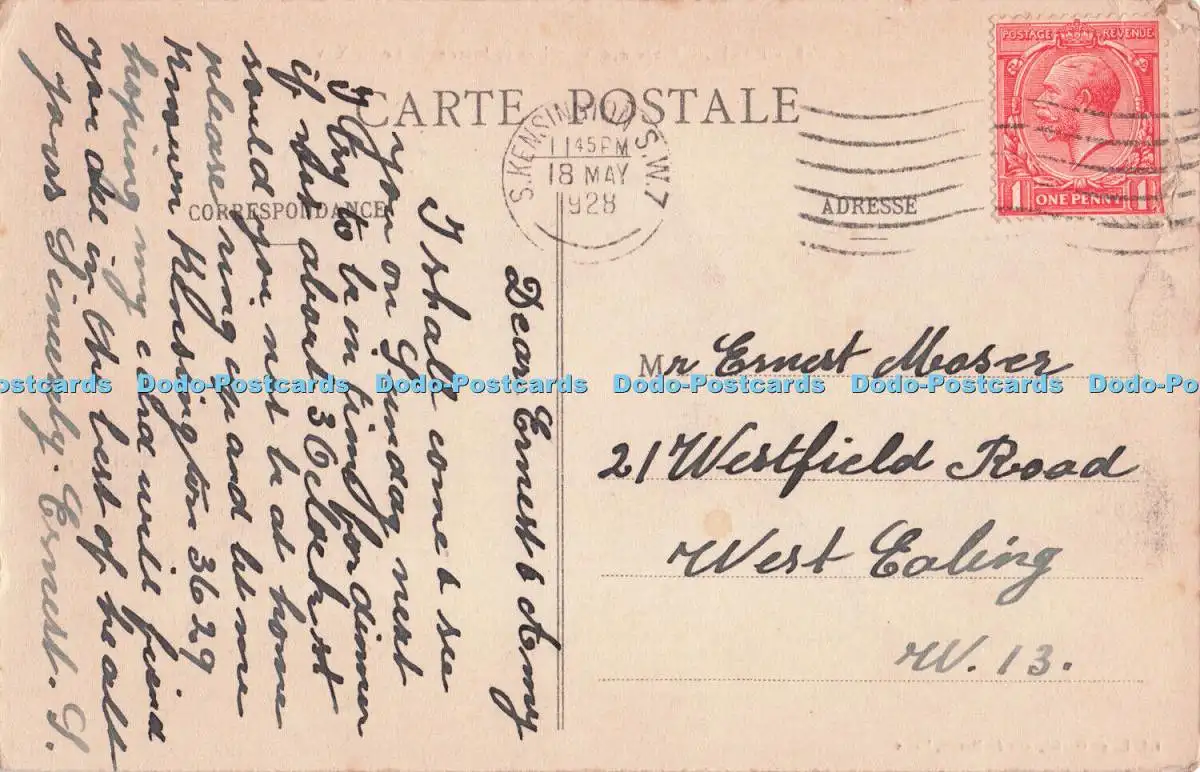 CARTE POSTALE
CORRESPONDANCE
ADRESSE
POSTAGE REVENUE
1 ONE PENNY 1
S. KENSINGTON S.W.7
11 45 PM
18 MAY
1928
Dear Ernest & Amy
I shall come & see
you on Sunday next
I try to be in time for dinner
if not about 3 Oclock st
sould you not be at home
please ring up and let me
known Klensington 3629
hoping my card will find
you all in the best of healt
yours Sincerely. Ernest. S.
Mr Ernest Moser
21 Westfield Road
West Ealing
W. 13.
Dodo-Postcards Dodo-Postcards Dodo-Postcards Dodo-Postcards Dodo-Postcards